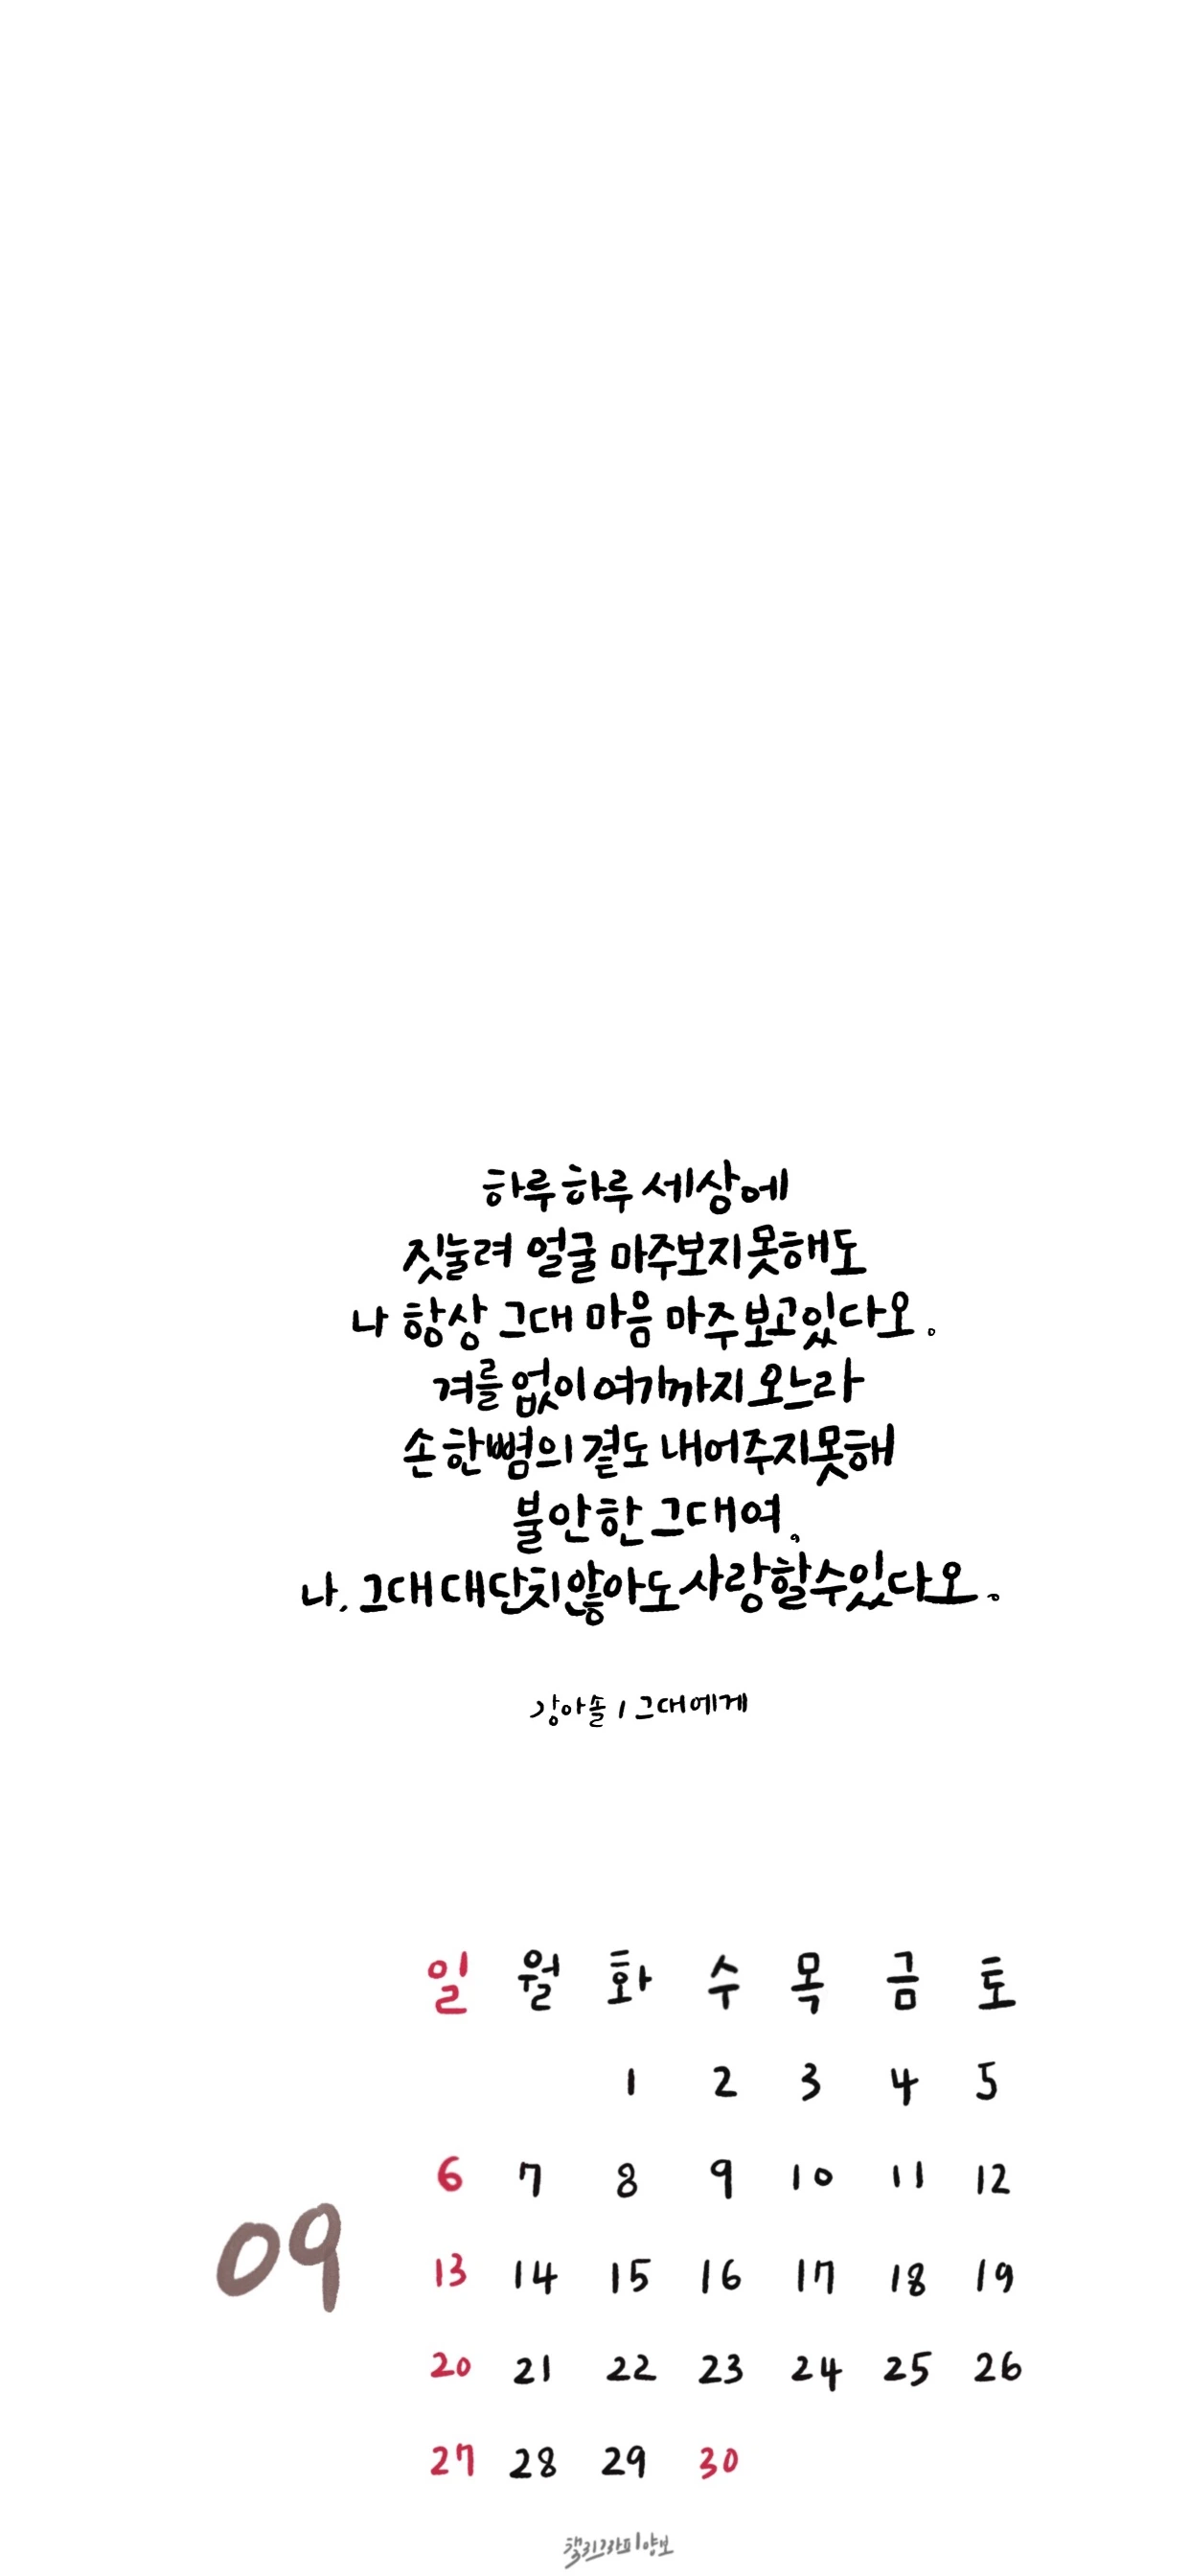 하루하루 세상에
짓눌려 얼굴 마주보지못해도
나 항상 그대 마음 마주보고있다오.
겨를 없이 여기까지 오느라
손 한뼘의 곁도 내어주지못해
불안한 그대여,
나, 그대 대단치않아도 사랑할수있다오.
강아솔 / 그대에게
일 월 화 수 목 금 토
1 2 3 4 5
6 7 8 9 10 11 12
09
13 14 15 16 17 18 19
20 21 22 23 24 25 26
27 28 29 30
캘리그라피양보